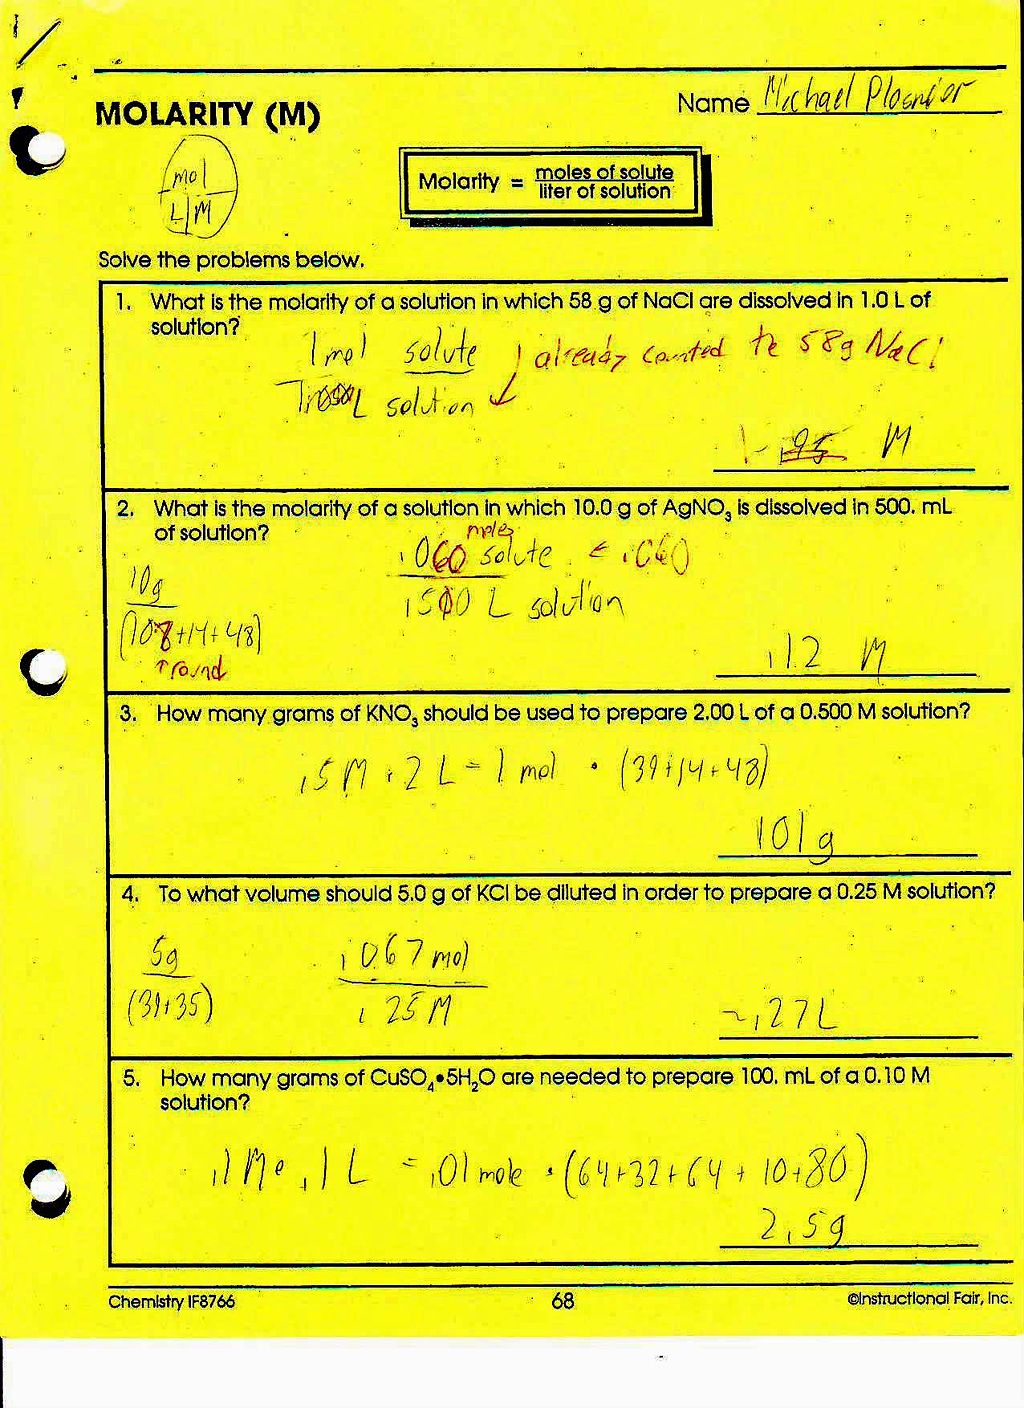 MOLARITY (M)
Name Michael
mol
L | M
Molarity = moles of solute
liter of solution
Solve the problems below.
1. What is the molarity of a solution in which 58 g of NaCl are dissolved in 1.0 L of
solution?
1 mol solute already counted the 58g NaCl
L solution
M
2. What is the molarity of a solution in which 10.0 g of AgNO₃ is dissolved in 500. mL
of solution?
moles
.060 solute ← .060
10g
.500 L solution
(108+14+48)
↑ round
.12 M
3. How many grams of KNO₃ should be used to prepare 2.00 L of a 0.500 M solution?
.5 M · 2 L = 1 mol · (39+14+48)
101g
4. To what volume should 5.0 g of KCl be diluted in order to prepare a 0.25 M solution?
5g .067 mol
(39+35) .25 M
~.27 L
5. How many grams of CuSO₄•5H₂O are needed to prepare 100. mL of a 0.10 M
solution?
.1 M • .1 L = .01 mole · (64+32+64+10+80)
2.5g
Chemistry IF8766
68
©Instructional Fair, Inc.